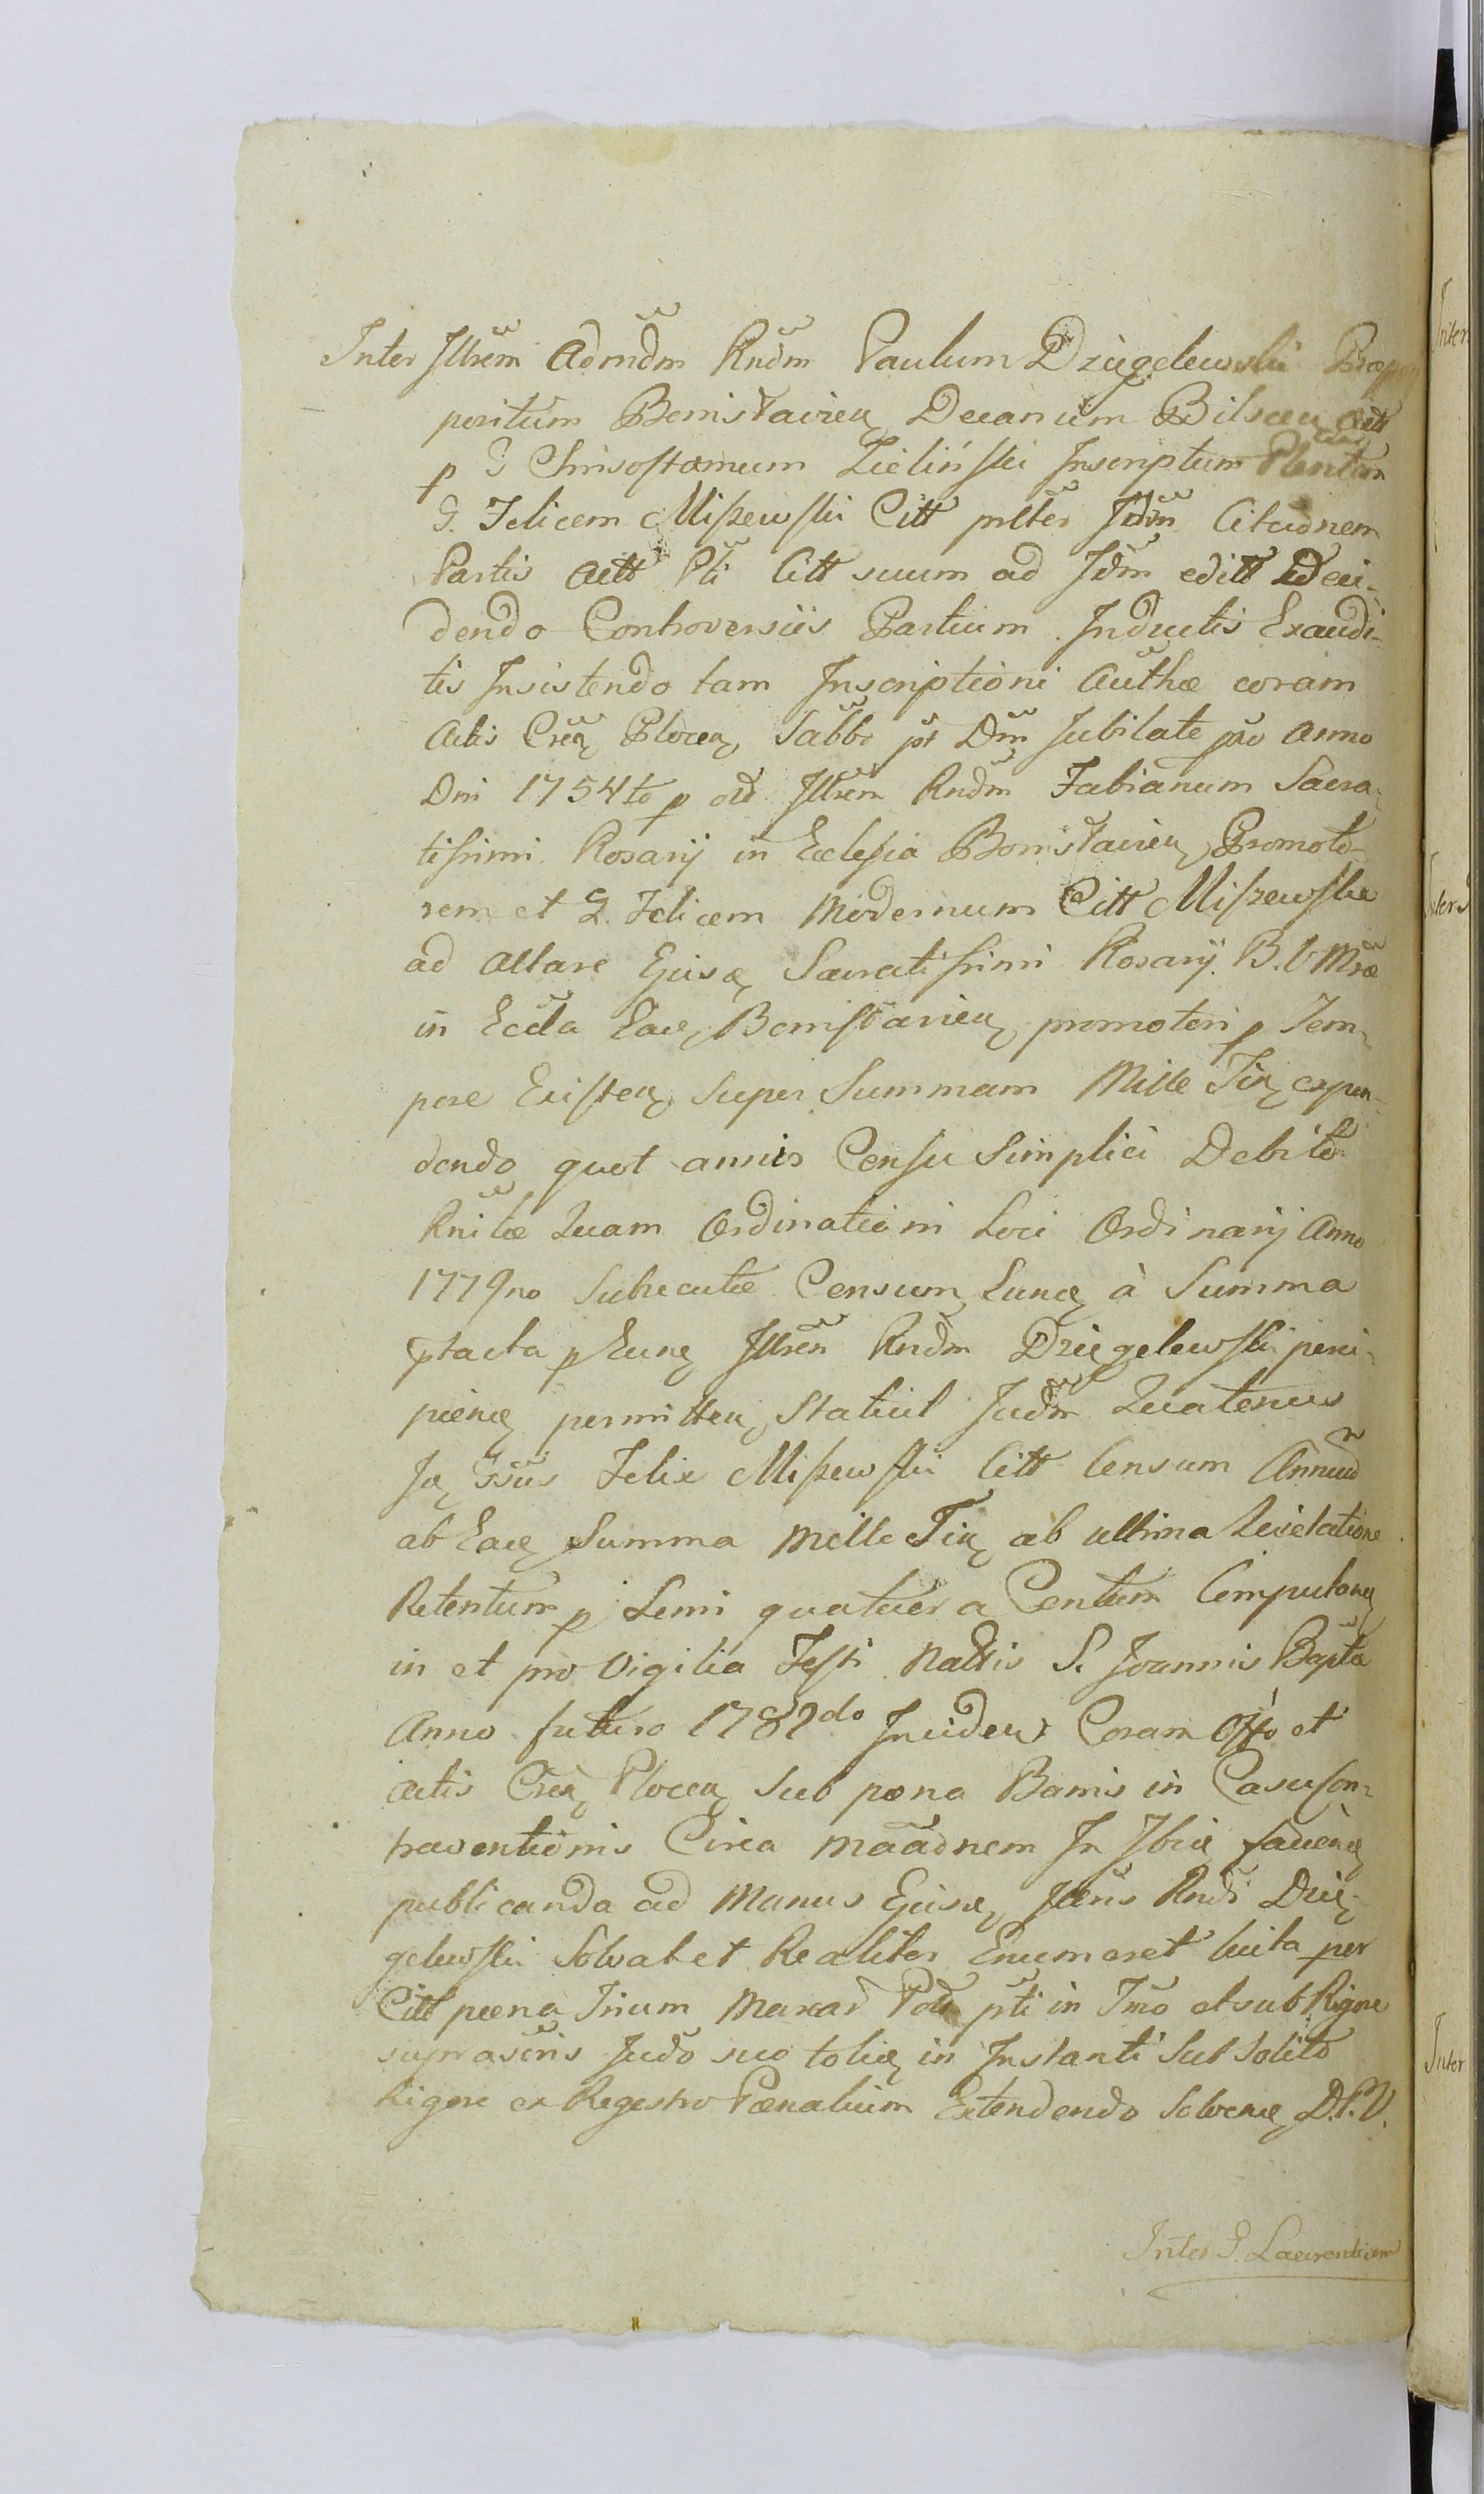 Inter Illrem Admdm Rndm Paulum Dzięgelewski Præpo
positum Bonislavien Decanum Bilscen Actt
p G Chrisostomum Zieliński Inscriptum Plentem
G. Felicem Miszewski Citt pnlter Jdm Citaonem
Partis Actt Pti Citt suum ad Jdm editt Deci-
dendo Controversiis Partium Inductis Exaudi-
tis Insistendo tam Inscriptioni Authæ coram
Actis Cren Plocen Sabbo pt Dm Jubilate pxo Anno
Dni 1754to p od Illrem Rndm Fabianum Sacra-
tissimi Rosarij in Eclesia Bonislavien Promoto-
rem et G. Felicem Modernum Citt Miszewskie
ad Altare Ejusq Sacratissimi Rosarij B. V Mræ
in Eccla Eaq Bonislavien promoteri p Tem-
pore Existen Super Summam Mille Fln expen-
dendo quot annis Censu Simplici Debito
Rnitæ Quam Ordinationi Loci Ordinarij Anno
1779no Subsecutæ Censum Eunq à Summa
ptacta p Eunq Illrem Rndm Dzięgelewski perci-
pienq permitten Statuit Judm Quatenus
Jq Gsus Felix Miszewski Citt Censum Annuu
ab Eaq Summa Mille Fln ab ultima Quietatione
Retentum p Semi quatuor a Centum Computonq
in et pro Vigilia Festi Nattis S. Joannis Bapta
Anno futuro 1782do Inciden Coram Offo et
Actis Cren Plocen Sub pœna Bannis in Casu Con-
traventionis Circa Maadnem In Jbiq facienq
publicanda ad Manus Ejusq Jllris Rndi Dzię-
gelewski Solvat et Realiter Enumeret luita per
Citt pœna Trium Marar Pol pti in Tmo et sub Rigore
suprascris Judo suo toliq in Instanti Sub Solito
Rigore ex Regestro Pœnalium Extendendo Solvenq D. P. V.
Inter G. Laurentium
Inter
Inter
Inter